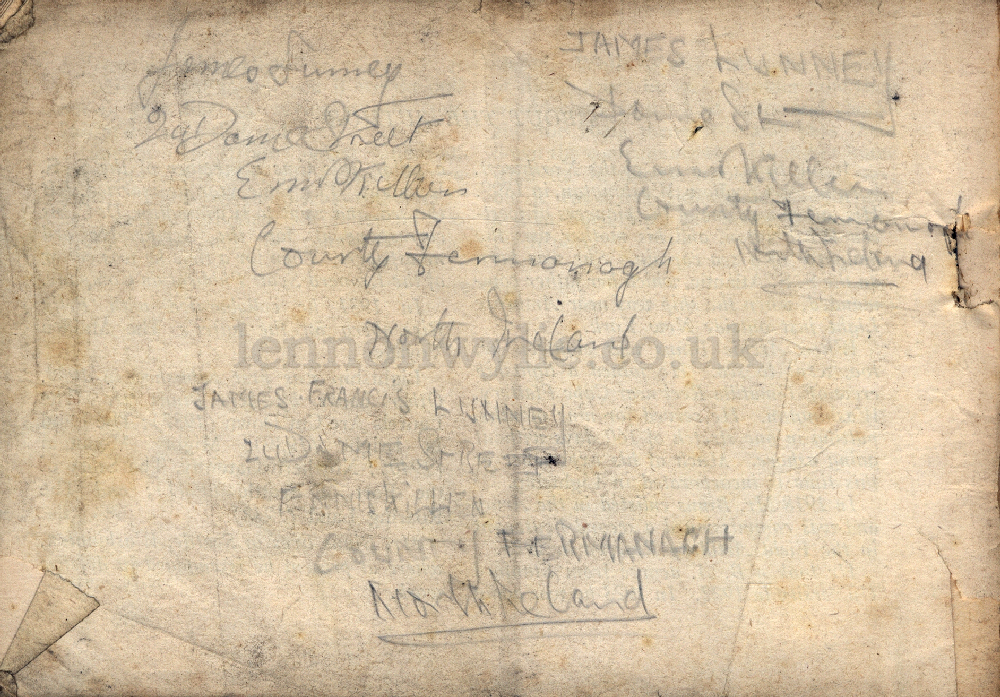 James Lunney
29 Dame Street
Enniskillen
County Fermanagh
North Ireland
JAMES LUNNEY
Dame St
Enniskillen
County Fermanagh
North Ireland
lennonwylie.co.uk
JAMES FRANCIS LUNNEY
29 DAME STREET
ENNISKILLEN
COUNTY FERMANAGH
North Ireland